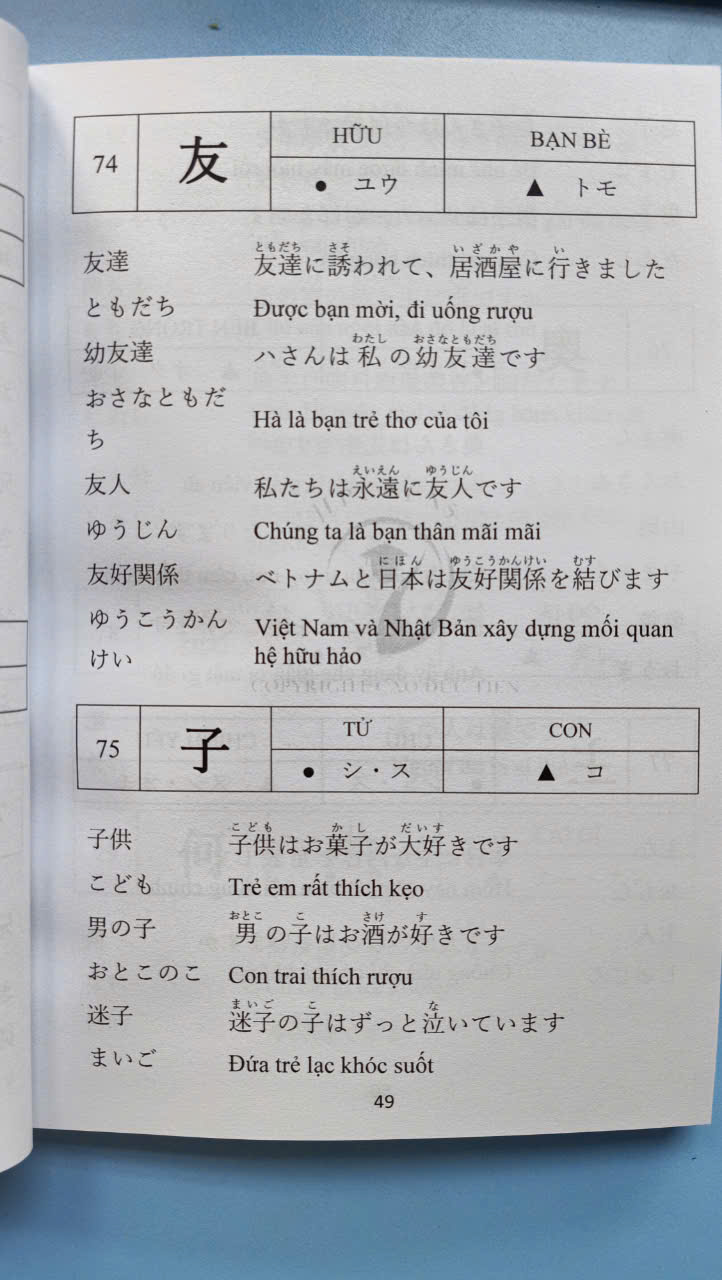 74 友 HỮU BẠN BÈ
● ユウ ▲ トモ
友達 友達に誘われて、居酒屋に行きました
ともだち さそ いざかや い
ともだち Được bạn mời, đi uống rượu
幼友達 ハさんは私の幼友達です
わたし おさなともだち
おさなともだ
ち
Hà là bạn trẻ thơ của tôi
友人 私たちは永遠に友人です
えいえん ゆうじん
ゆうじん Chúng ta là bạn thân mãi mãi
友好関係 ベトナムと日本は友好関係を結びます
にほん ゆうこうかんけい むす
ゆうこうかん
けい
Việt Nam và Nhật Bản xây dựng mối quan
hệ hữu hảo
COPYRIGHT CAO DUC TIEN
75 子 TỬ CON
● シ・ス ▲ コ
子供 子供はお菓子が大好きです
こども かし だいす
こども Trẻ em rất thích kẹo
男の子 男の子はお酒が好きです
おとこ こ さけ す
おとこのこ Con trai thích rượu
迷子 迷子の子はずっと泣いています
まいご こ な
まいご Đứa trẻ lạc khóc suốt
49